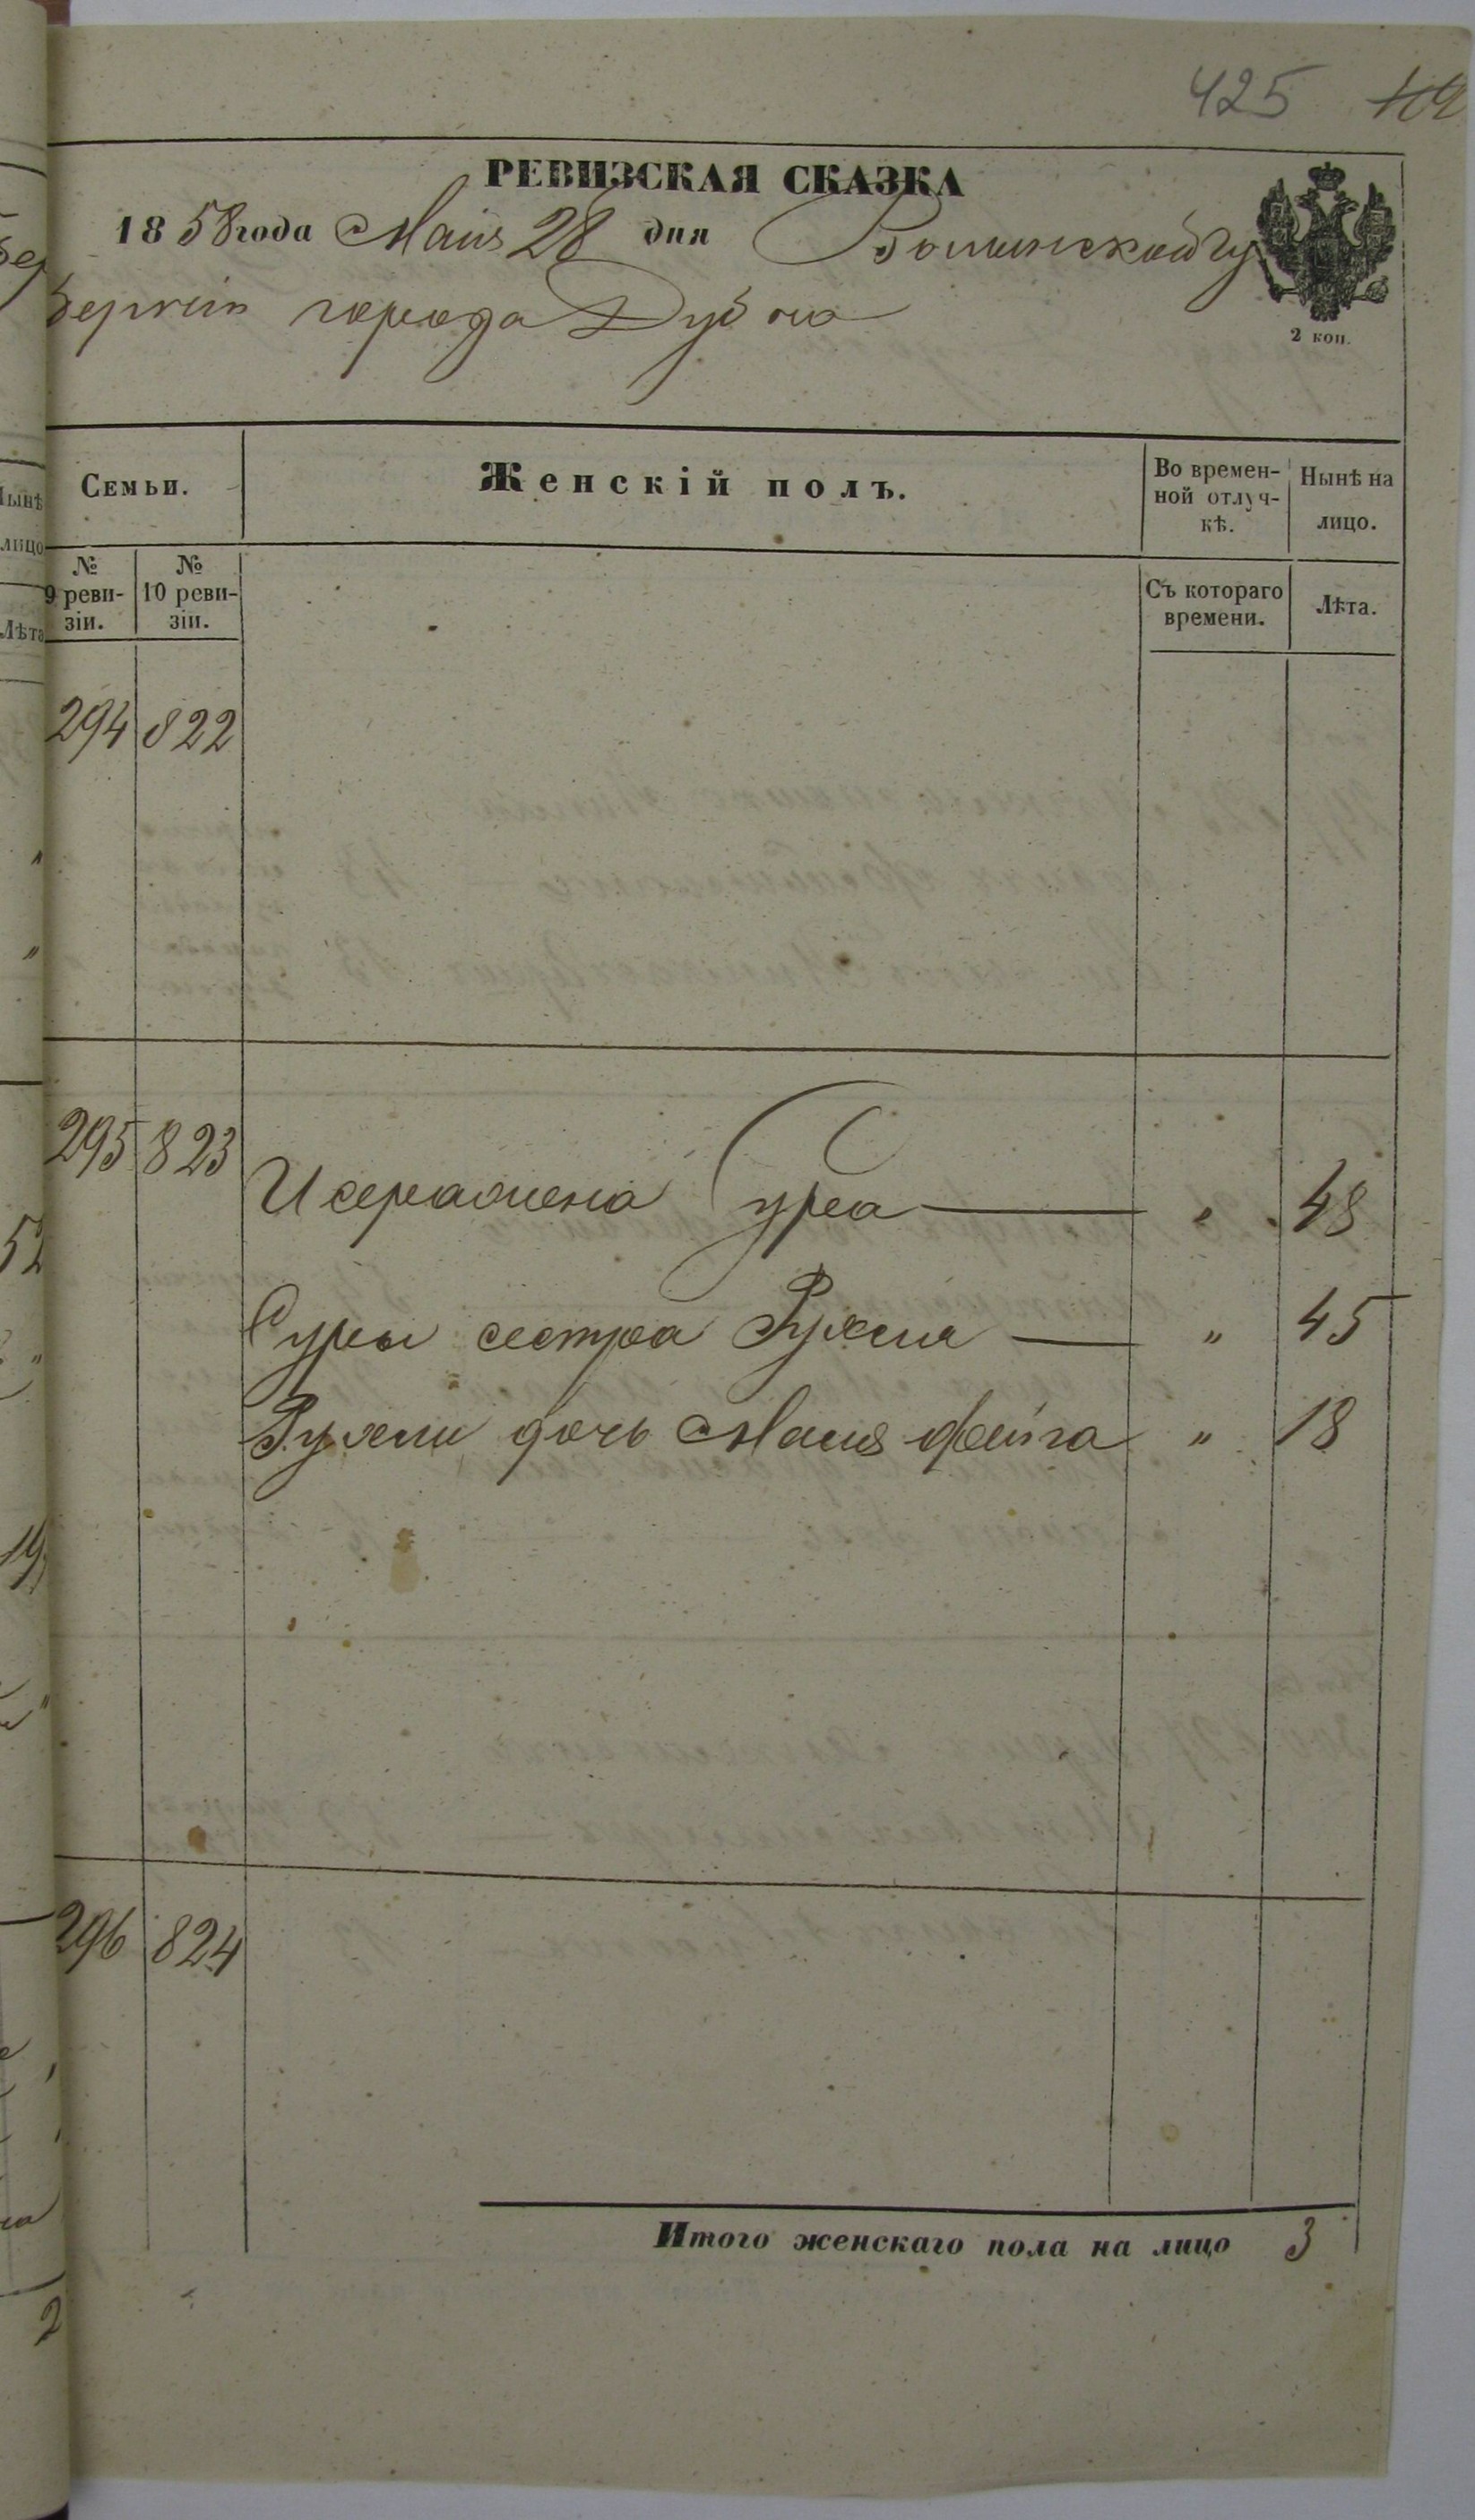 425
РЕВИЗСКАЯ СКАЗКА
1858 года Маія 28 дня Волынской Гу
берніи города Дубна
2 коп.
Семьи.
Женскій полъ.
Во времен-
ной отлуч-
кѣ.
Нынѣ на
лицо.
№
9 реви-
зіи.
№
10 реви-
зіи.
Съ котораго
времени.
Лѣта.
294 822
295 823
жена Сура — „ 48
Суры сестра Рухля — „ 45
Рухли дочь Маия Фейга „ 18
296 824
Итого женскаго пола на лицо 3